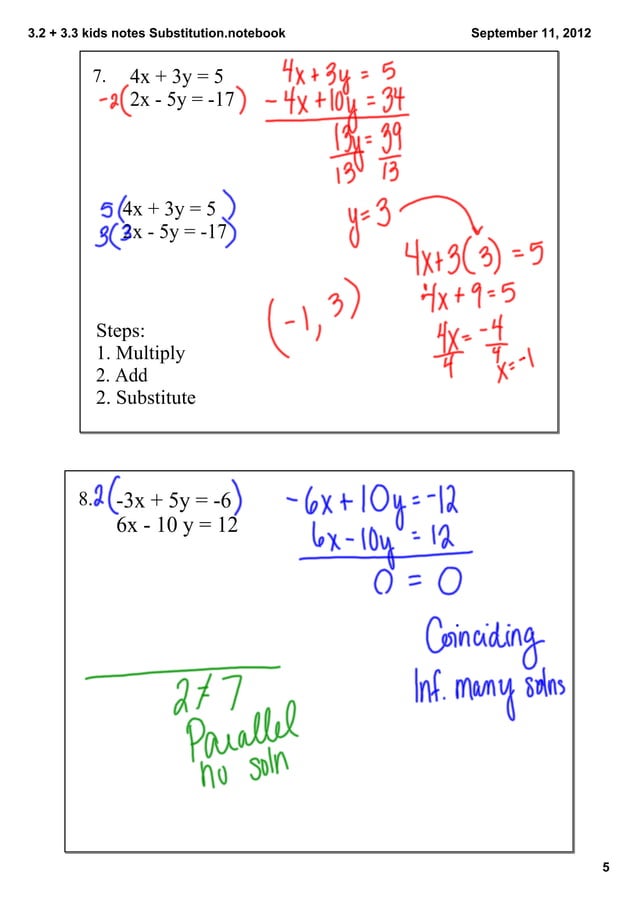 3.2 + 3.3 kids notes Substitution.notebook
September 11, 2012
7. 4x + 3y = 5
-2(2x - 5y = -17)
4x + 3y = 5
-4x + 10y = 34
13y = 39
13 13
y = 3
4x + 3(3) = 5
4x + 9 = 5
4x = -4
4 4
x = -1
(-1, 3)
5(4x + 3y = 5)
3(3x - 5y = -17)
Steps:
1. Multiply
2. Add
2. Substitute
8. 2(-3x + 5y = -6)
6x - 10 y = 12
-6x + 10y = -12
6x - 10y = 12
0 = 0
Coinciding
Inf. many solns
2 ≠ 7
Parallel
no soln
5